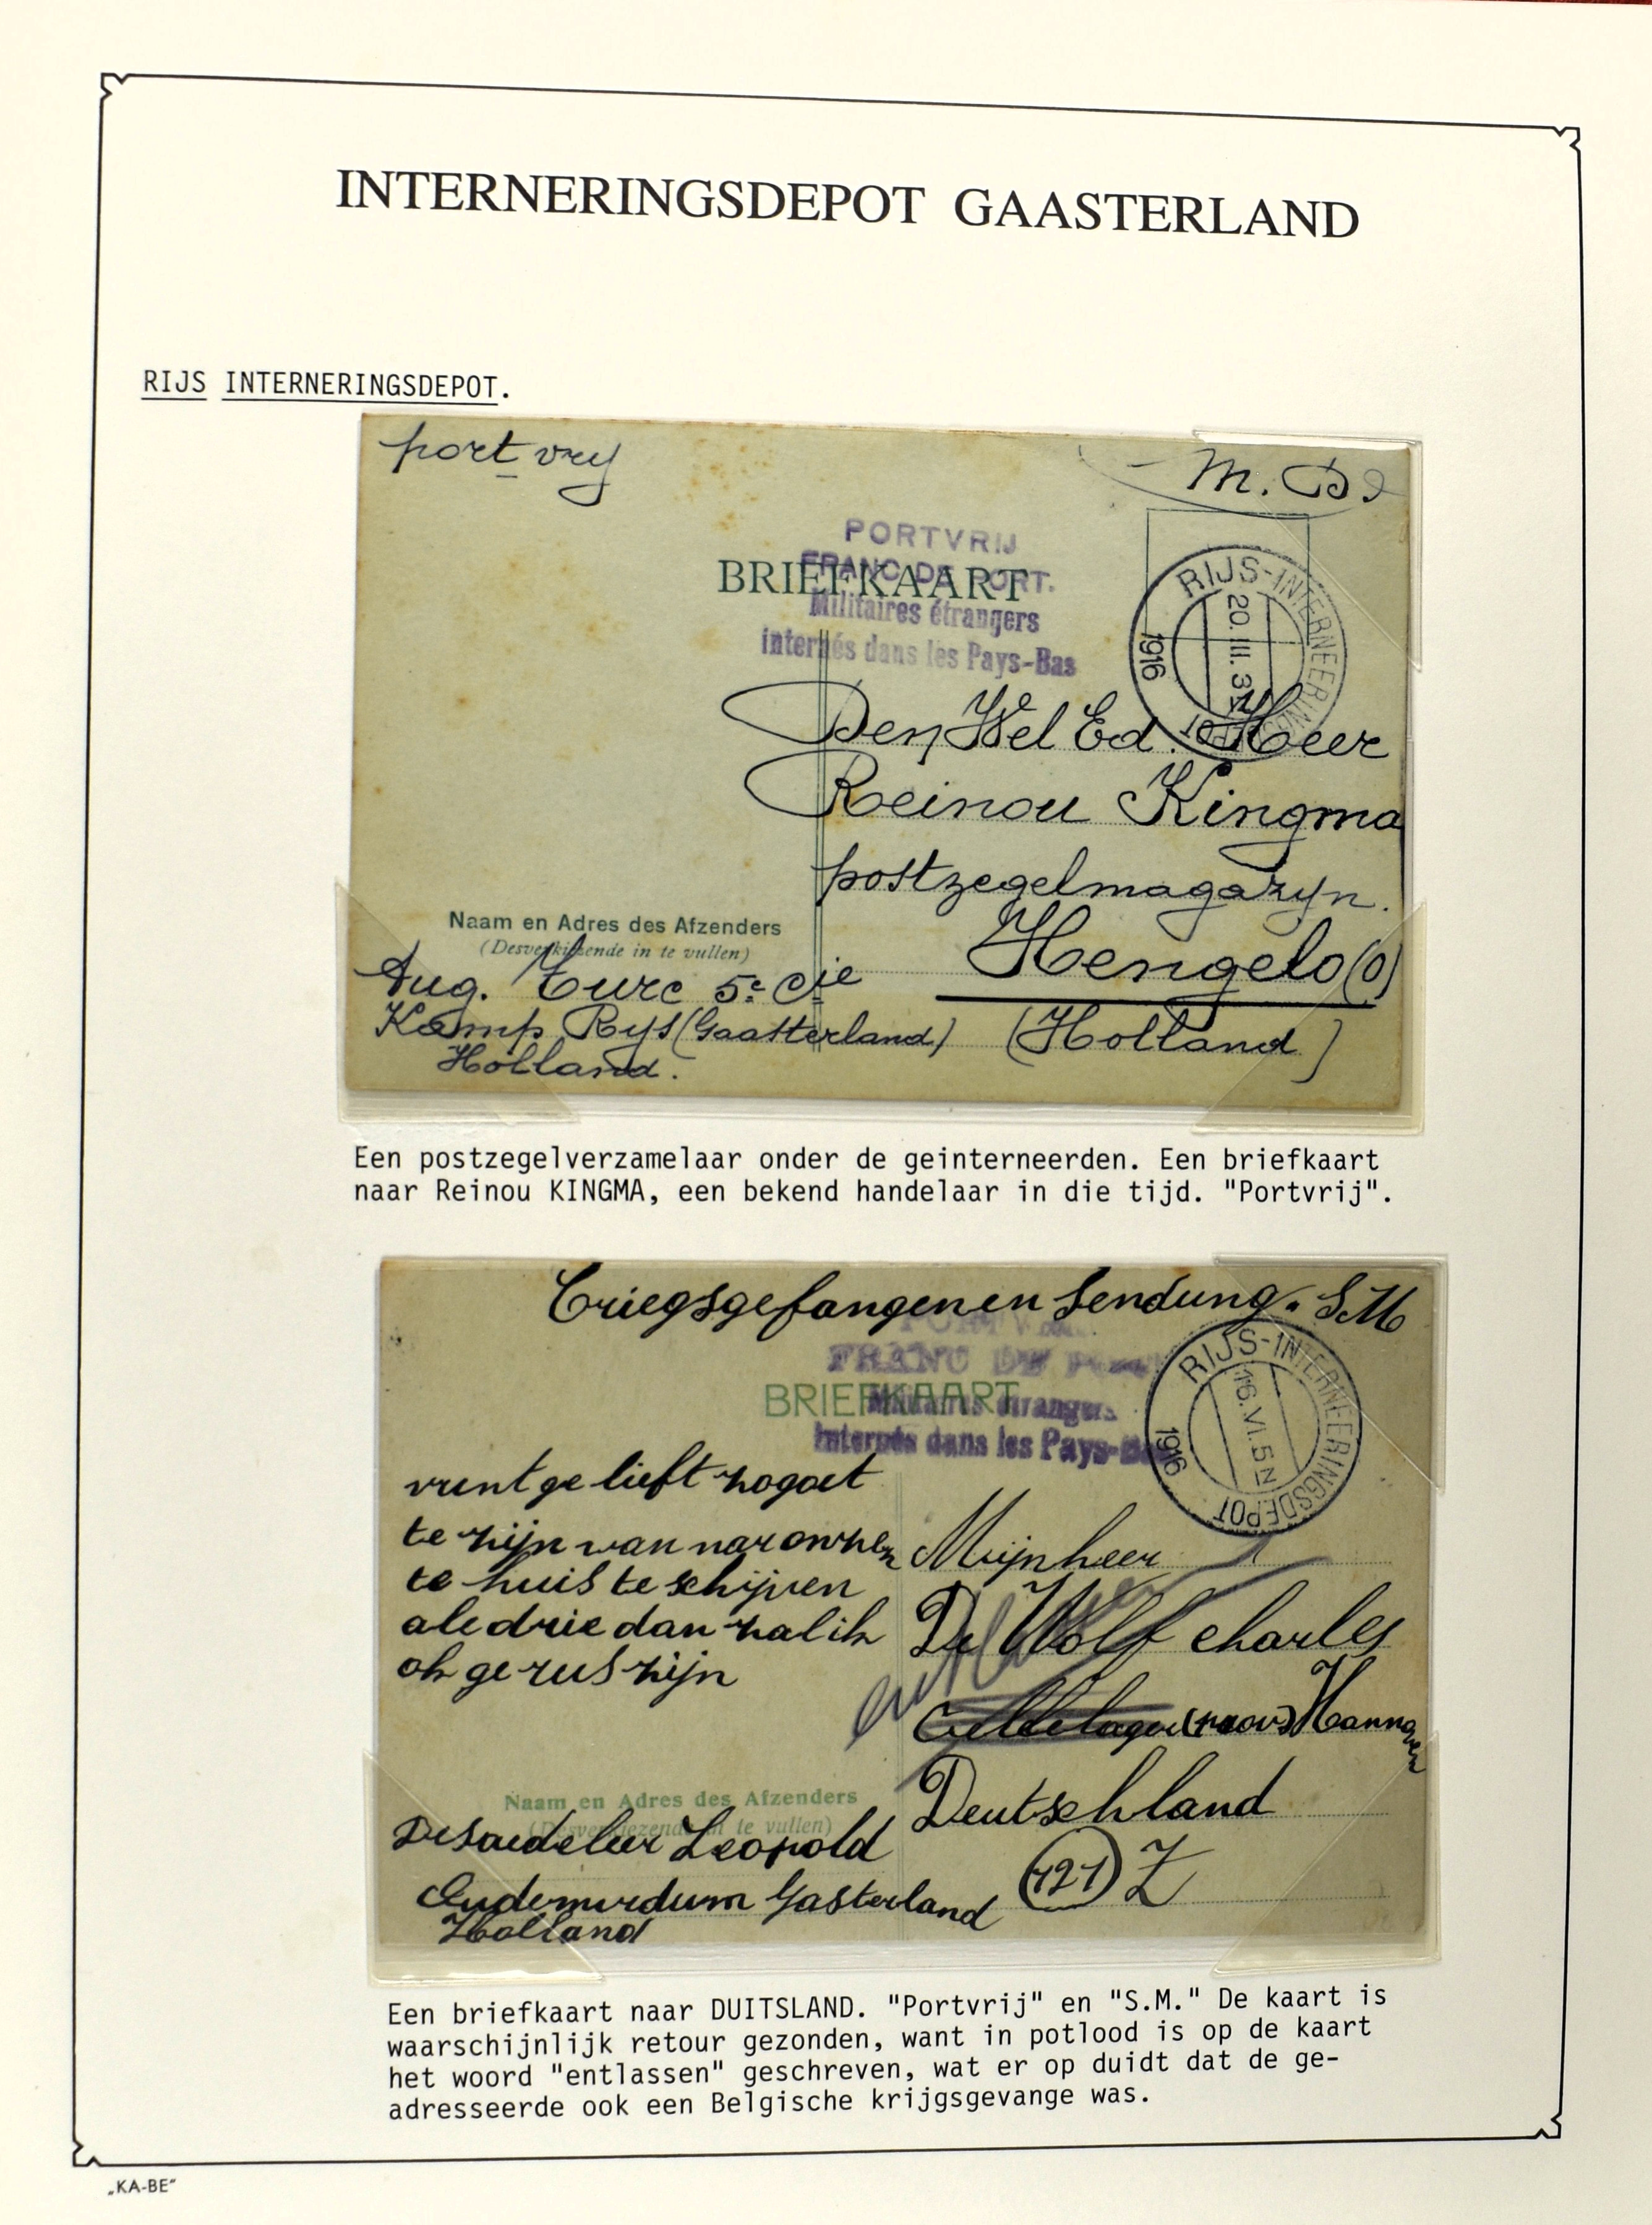 INTERNERINGSDEPOT GAASTERLAND
RIJS INTERNERINGSDEPOT.
port vry
M. D.
PORTVRIJ
FRANC DE PORT.
BRIEFKAART
Militaires étrangers
internés dans les Pays-Bas
RIJS-INTERNEERINGSDEPOT
20.III.3N
1916
Den Wel Ed. Heer
Reinou Kingma
postzegelmagazyn.
Hengelo (O)
(Holland)
Naam en Adres des Afzenders
(Desverkiezende in te vullen)
Aug. Turc 5e Cie
Kamp Rys (Gaasterland)
Holland.
Een postzegelverzamelaar onder de geinterneerden. Een briefkaart
naar Reinou KINGMA, een bekend handelaar in die tijd. "Portvrij".
Criegsgefangenen Sendung. S.M
PORTVRIJ
FRANC DE PORT
BRIEFKAART
Militaires étrangers
Internés dans les Pays-Bas
RIJS-INTERNEERINGSDEPOT
16.VI.5N
1916
vrunt ge lieft zo goet
te zijn van nar onzen
te huis te schijven
ale drie dan zal ik
ok ge rus zijn
Mijnheer
De Wolf charles
Cellelager Hannover
Deutschland
(121) Z
Naam en Adres des Afzenders
(Desverkiezende in te vullen)
Desaedeleer Leopold
Oudemirdum Gasterland
Holland
Een briefkaart naar DUITSLAND. "Portvrij" en "S.M." De kaart is
waarschijnlijk retour gezonden, want in potlood is op de kaart
het woord "entlassen" geschreven, wat er op duidt dat de ge-
adresseerde ook een Belgische krijgsgevange was.
„KA-BE"